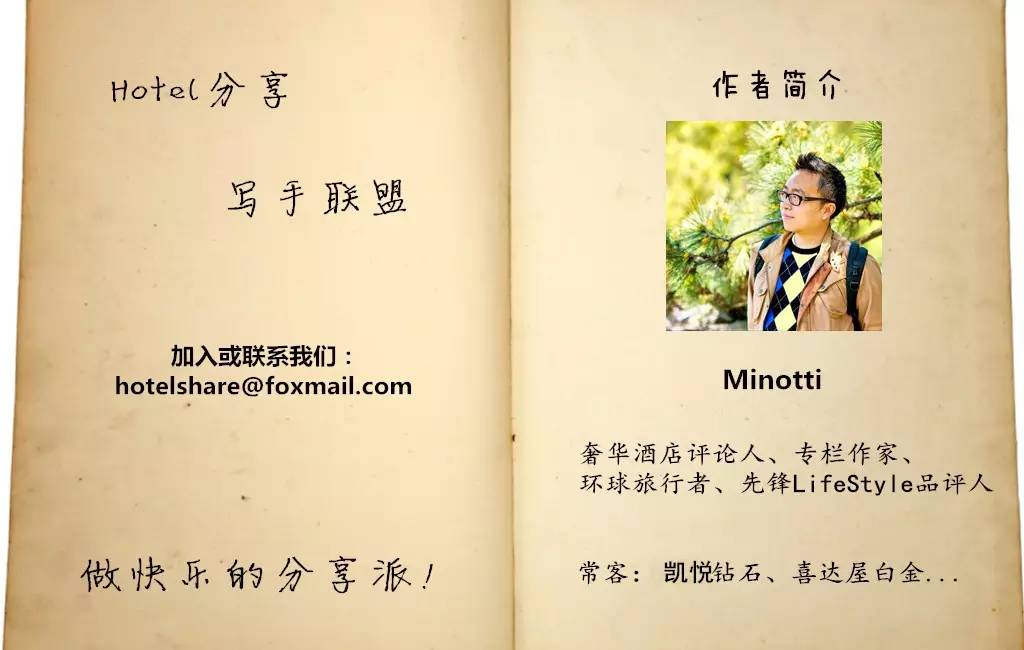 Hotel分享
写手联盟
加入或联系我们：
hotelshare@foxmail.com
做快乐的分享派！
作者简介
Minotti
奢华酒店评论人、专栏作家、
环球旅行者、先锋LifeStyle品评人
常客：凯悦钻石、喜达屋白金...